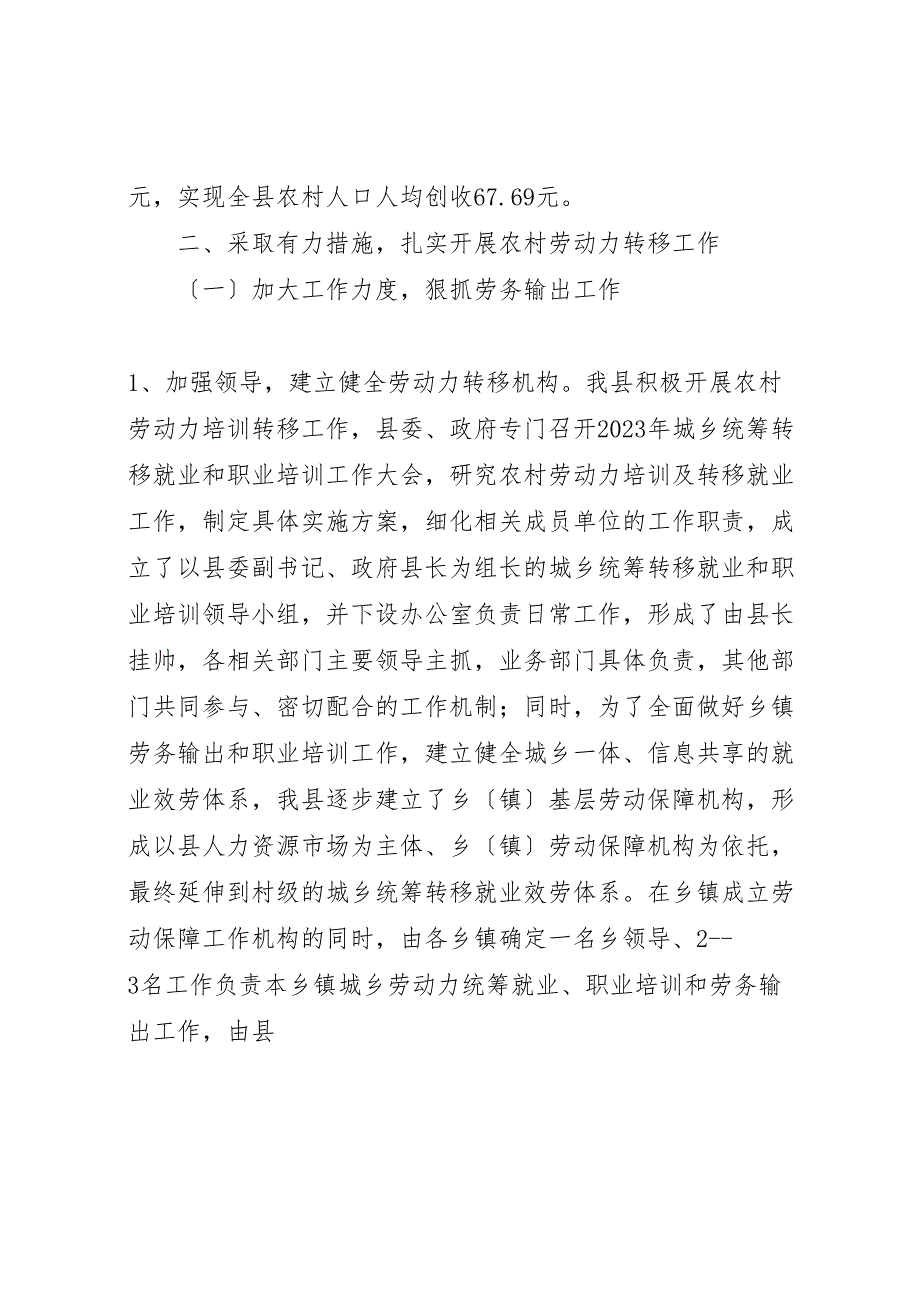 元，实现全县农村人口人均创收67.69元。
二、采取有力措施，扎实开展农村劳动力转移工作
〔一〕加大工作力度，狠抓劳务输出工作
1、加强领导，建立健全劳动力转移机构。我县积极开展农村
劳动力培训转移工作，县委、政府专门召开2023年城乡统筹转
移就业和职业培训工作大会，研究农村劳动力培训及转移就业
工作，制定具体实施方案，细化相关成员单位的工作职责，成
立了以县委副书记、政府县长为组长的城乡统筹转移就业和职
业培训领导小组，并下设办公室负责日常工作，形成了由县长
挂帅，各相关部门主要领导主抓，业务部门具体负责，其他部
门共同参与、密切配合的工作机制；同时，为了全面做好乡镇
劳务输出和职业培训工作，建立健全城乡一体、信息共享的就
业效劳体系，我县逐步建立了乡〔镇〕基层劳动保障机构，形
成以县人力资源市场为主体、乡〔镇〕劳动保障机构为依托，
最终延伸到村级的城乡统筹转移就业效劳体系。在乡镇成立劳
动保障工作机构的同时，由各乡镇确定一名乡领导、2--
3名工作负责本乡镇城乡劳动力统筹就业、职业培训和劳务输
出工作，由县